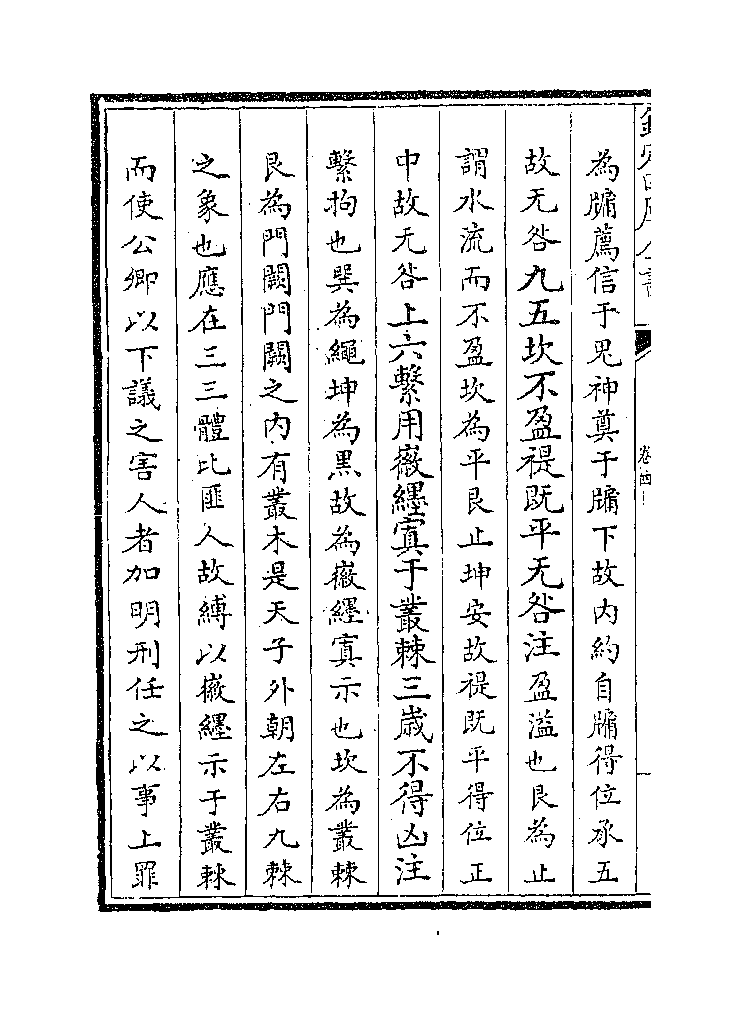 欽定四庫全書
卷四
為牖薦信于鬼神奠于牖下故内約自牖得位承五
故无咎九五坎不盈禔既平无咎注盈溢也艮為止
謂水流而不盈坎為平艮止坤安故禔既平得位正
中故无咎上六繫用徽纆寘于叢棘三歳不得凶注
繫拘也巽為繩坤為黒故為徽纆寘示也坎為叢棘
艮為門闕門闕之内有叢木是天子外朝左右九棘
之象也應在三三體比匪人故縛以徽纆示于叢棘
而使公卿以下議之害人者加明刑任之以事上罪